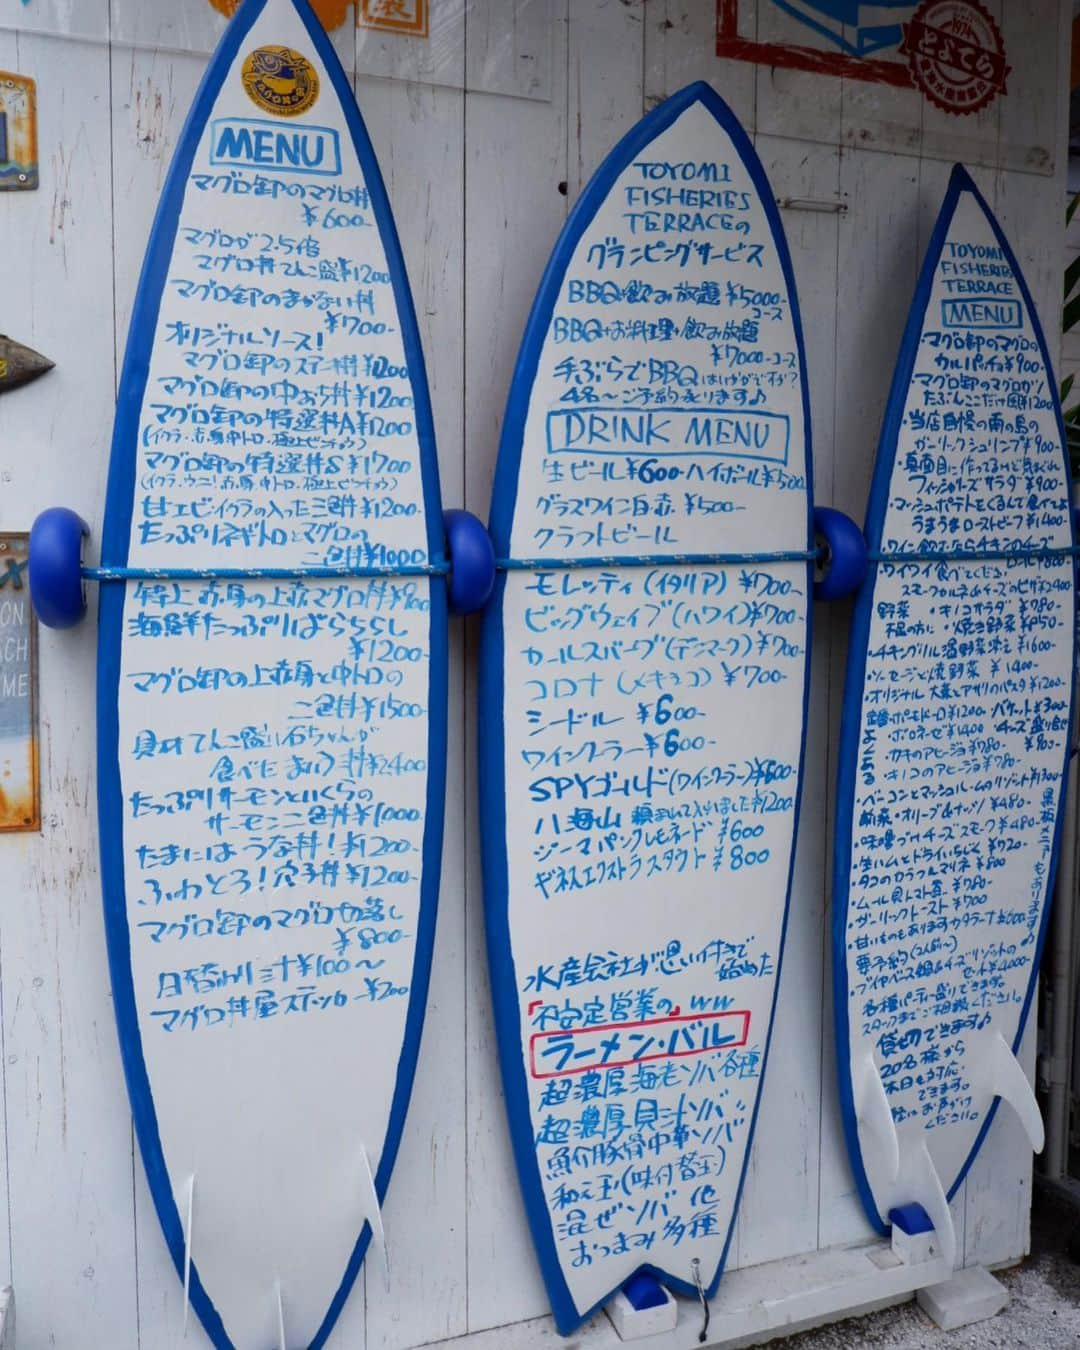 MENU
マグロ卸のマグロ丼
¥600-
マグロが2.5倍
マグロ丼てんこ盛¥1200
マグロ卸のまかない丼
¥700-
オリジナルソース!
マグロ卸のステーキ丼¥1200
マグロ卸の中おち丼¥1200-
マグロ卸の特選丼A¥1200
(イクラ・赤身・中トロ・極上ビンチョウ)
マグロ卸の特選丼S¥1700
(イクラ・ウニ・赤身・中トロ・極上ビンチョウ)
甘エビ・イクラの入った三色丼¥1200-
たっぷりネギトロとマグロの
二色丼¥1000
特上赤身の上赤マグロ丼¥900
海鮮たっぷりばらちらし
¥1200-
マグロ卸の上赤身と中トロの
二色丼¥1500-
具材てんこ盛り石ちゃんが
食べたまいう丼¥2400
たっぷりサーモンといくらの
サーモン二色丼¥1000-
たまにはうな丼!¥1200-
ふわとろ!穴子丼¥1200-
マグロ卸のマグロ切落し
¥800-
日替わり汁¥100～
マグロ丼屋ステッカー¥200
TOYOMI
FISHERIES
TERRACEの
グランピングサービス
BBQ+飲み放題¥5000-
コース
BBQ+お料理+飲み放題
¥7000-コース
手ぶらでBBQはいかがですか?
4名～ご予約承ります♪
DRINK MENU
生ビール¥600-ハイボール¥500
グラスワイン白・赤 ¥500-
クラフトビール
モレッティ(イタリア)¥700-
ビッグウェイブ(ハワイ)¥700-
カールスバーグ(デンマーク)¥700-
コロナ(メキシコ)¥700-
シードル ¥600-
ワインクーラー¥600-
SPYゴールド(ワインクーラー)¥600-
八海山 頼まれて入れました¥1200
ジーマ パンクレモネード ¥600
ギネスエクストラスタウト ¥800
水産会社が思い付きで
始めた
「不安定営業の」ww
ラーメン・バル
超濃厚海老ソバ各種
超濃厚貝汁ソバ
魚介豚骨中華ソバ
和え玉(味付替玉)
混ぜソバ 他
おつまみ多種
とよてら
TOYOMI
FISHERIES
TERRACE
MENU
・マグロ卸のマグロの
カルパッチョ¥900-
・マグロ卸のマグロカツ
たぶんここだけ ¥1200
・当店自慢の南の島の
ガーリックシュリンプ¥900-
・真面目に作ってるけど気まぐれ
フィッシャリーズサラダ¥900-
・マッシュポテトをくるんで食べてね
うまうまローストビーフ¥1400-
・ワイン飲むならチキンのチーズ
ロール¥800-
・ワイワイ食べてください
スモークサーモン&チーズのピザ¥2400
野菜 ・キノコサラダ ¥780-
不足の方に・焼き野菜¥850-
・チキングリル温野菜添え¥1600-
・ソーセージと焼野菜 ¥1400-
・オリジナル 大葉とアサリのパスタ¥1200-
定番・ポモドーロ¥1200- バケット¥300
・ボロネーゼ¥1400 ・チーズ盛り合せ
・カキのアヒージョ¥980- ¥900-
・キノコのアヒージョ¥780-
・ベーコンとマッシュルームのリゾット¥1300
前菜・オリーブ&ナッツ ¥480-
・味噌づけチーズスモーク¥480-
・生ハムとドライいちじく ¥720-
・タコのカラフルマリネ ¥800
・ムール貝トマト煮 ¥980-
・ガーリックトースト¥700
・甘いものもありますカタラーナ¥600
要予約(2人前～)
・ブイヤベース鍋&チーズリゾットの
セット¥4000-
黒板メニューもあります♪
各種パーティー盛りできます。
スタッフまでご相談ください。
貸切できます♪
20名様から
本日も対応
できます。
軽にお声がけ
ください。